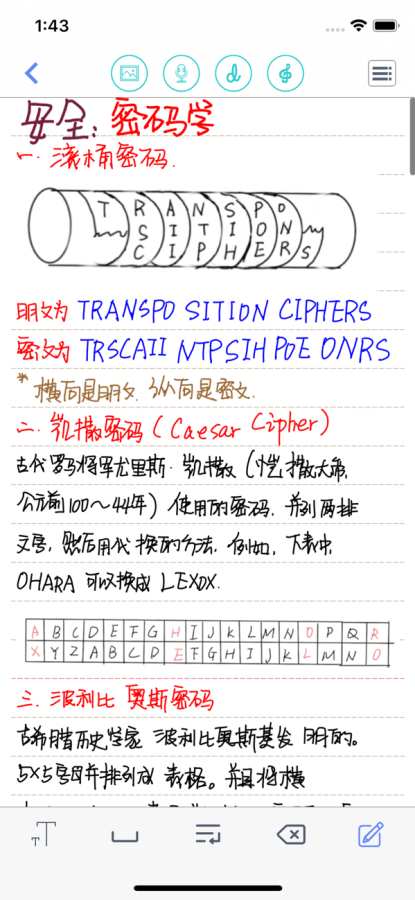 1:43
安全: 密码学
一. 滚桶密码.
T R A N S P O
S I T I O N
C I P H E R S
明文为 TRANSPO SITION CIPHERS
密文为 TRSCAII NTPSIHPOE ONRS
*横向是明文. 纵向是密文.
二. 凯撒密码 (Caesar Cipher)
古代罗马将军尤里斯·凯撒 (恺撒大帝,
公元前100~44年) 使用的密码. 并列两排
文字, 然后用代换的方法. 例如, 下表中,
OHARA 可以换成 LEXOX.
A B C D E F G H I J K L M N O P Q R
X Y Z A B C D E F G H I J K L M N O
三. 波利比奥斯密码
古希腊历史学家 波利比奥斯 发明的。
5×5字母并排列成 表格。并且将横
T T